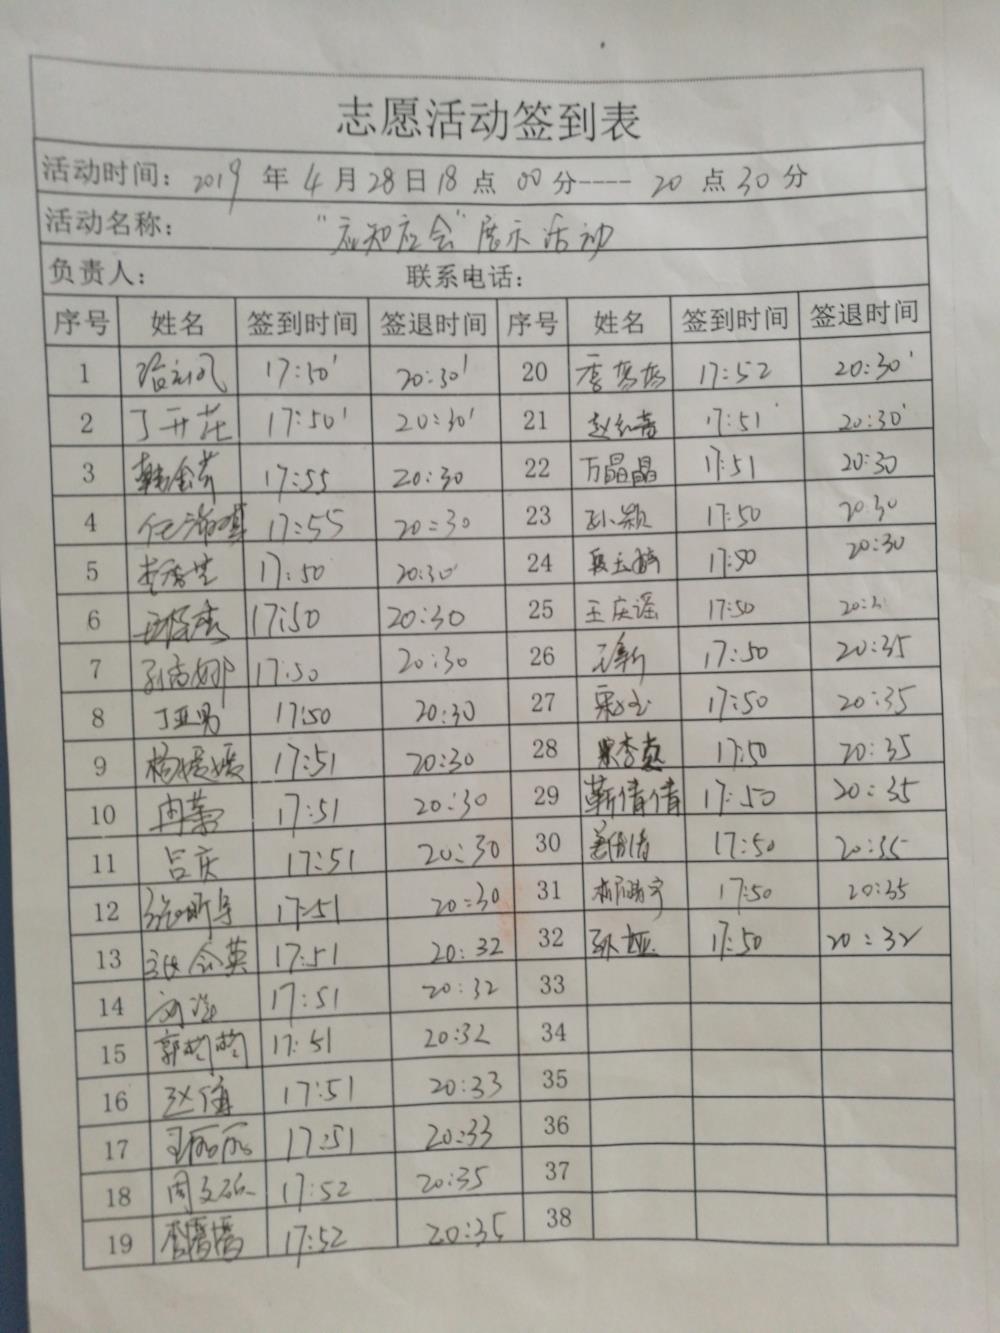 志愿活动签到表
活动时间：2019年4月28日18点00分----20点30分
活动名称： "应知应会"展示活动
负责人： 联系电话：
序号 姓名 签到时间 签退时间 序号 姓名 签到时间 签退时间
1 17:50' 20:30' 20 17:52 20:30'
2 丁开花 17:50' 20:30' 21 17:51' 20:30'
3 17:55 20:30 22 万晶晶 17:51 20:30
4 17:55 20:30 23 孙颖 17:50 20:30
5 17:50 20:30' 24 17:50 20:30
6 17:50 20:30 25 王庆谣 17:50 20:3
7 17:50 20:30 26 王新 17:50 20:35
8 丁亚男 17:50 20:30 27 17:50 20:35
9 杨媛媛 17:51 20:30 28 17:50 20:35
10 冉蕾 17:51 20:30 29 靳倩倩 17:50 20:35
11 吕庆 17:51 20:30 30 17:50 20:35
12 17:51 20:30 31 17:50 20:35
13 张会英 17:51 20:32 32 孙娅 17:50 20:32
14 17:51 20:32 33
15 17:51 20:32 34
16 17:51 20:33 35
17 王丽丽 17:51 20:33 36
18 17:52 20:35 37
19 17:52 20:35 38